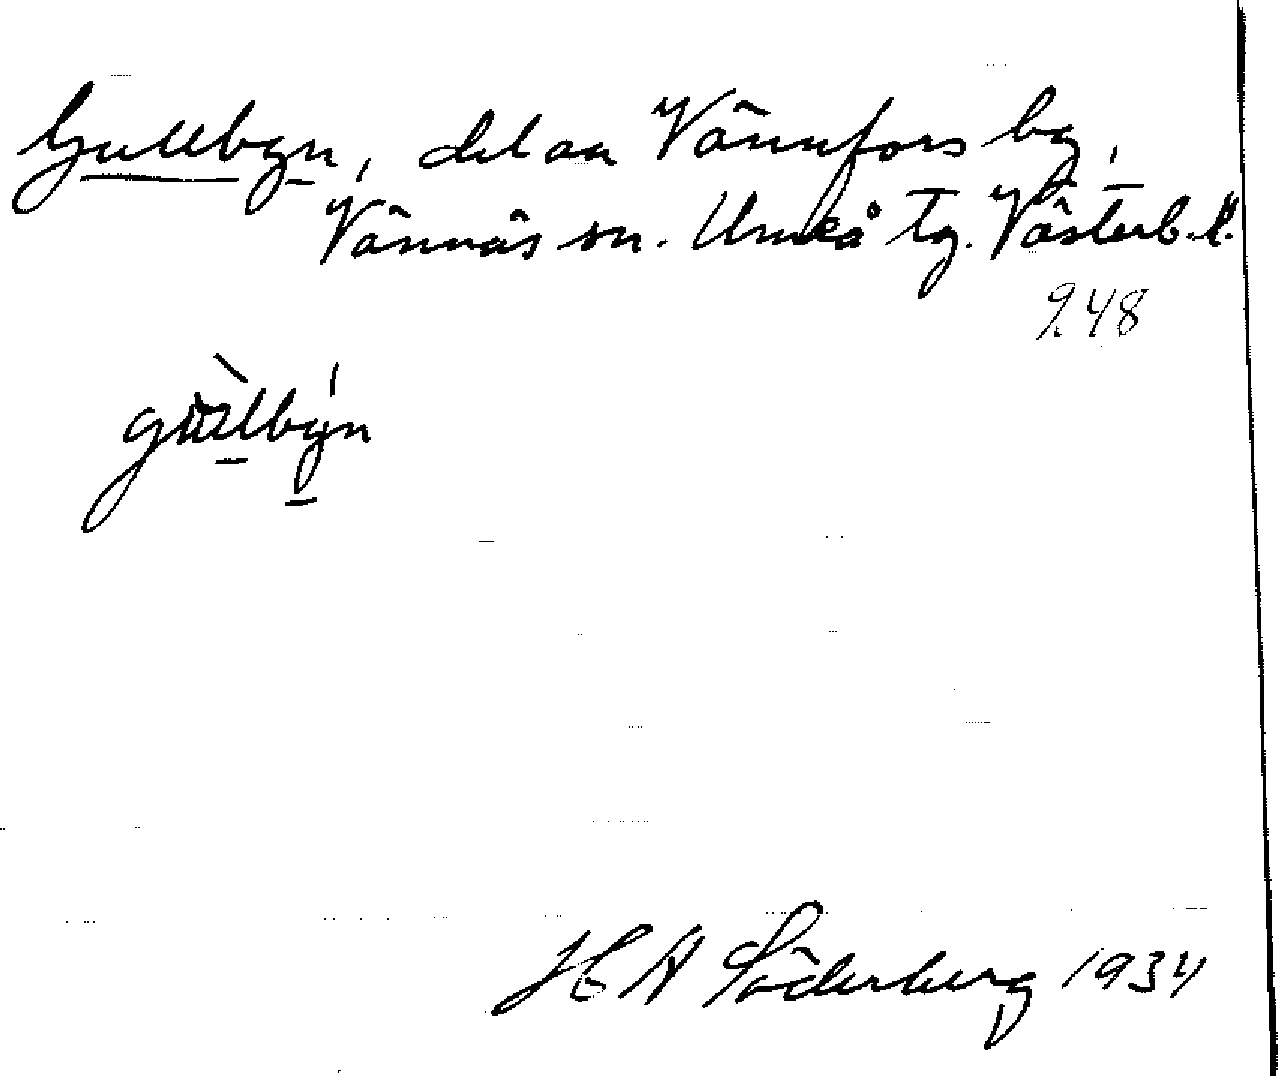 Gullbyn, del av Vännfors by,
Vännäs sn. Umeå tg. Västerb. l.
948
H A Söderberg 1934